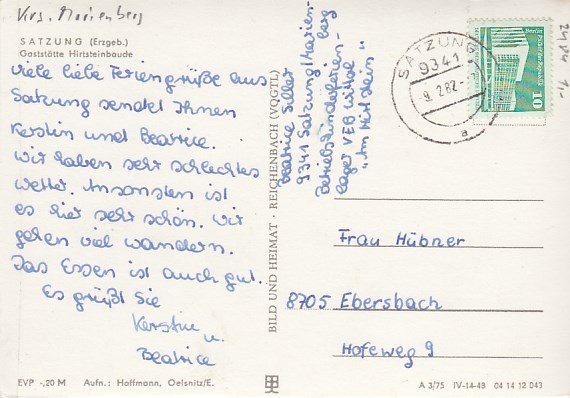 Krs. Marienberg
SATZUNG (Erzgeb.)
Gaststätte Hirtsteinbaude
Viele liebe Feriengrüße aus
Satzung sendet Ihnen
Kerstin und Beatrice.
Wir haben sehr schlechtes
Wetter. Ansonsten ist
es hier sehr schön. Wir
gehen viel wandern.
Das Essen ist auch gut.
Es grüßt Sie
Kerstin
u.
Beatrice
EVP -,20 M Aufn.: Hoffmann, Oelsnitz/E.
BILD UND HEIMAT · REICHENBACH (VOGTL)
Beatrice
9341 Satzung/Marien-
berg
Betriebskinderferien-
lager VEB
"Am Hirtstein"
SATZUNG
9341
-9. 2. 82 -
a
10
Frau Hübner
8705 Ebersbach
Hofeweg 9
A 3/75 IV-14-48 04 14 12 043